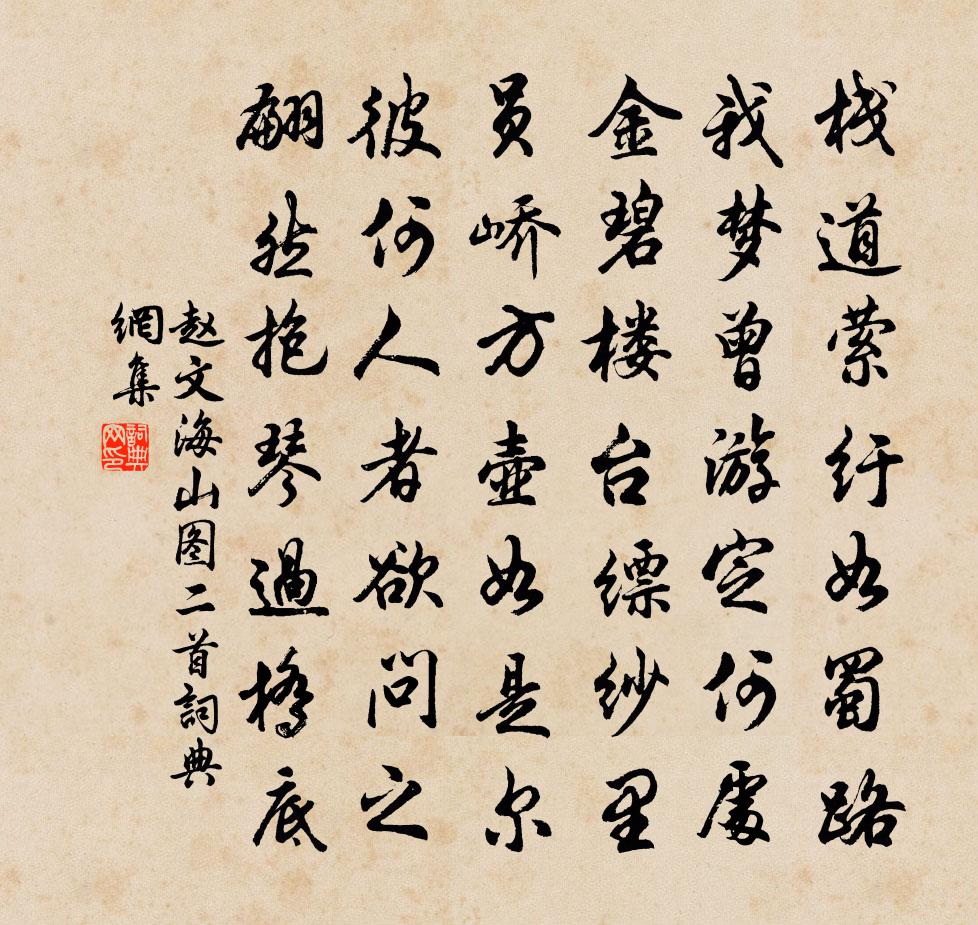 栈道萦纡如蜀路
我梦曾游定何處
金碧楼台缥纱里
员峤方壶如是尔
彼何人者欲问之
翩然抱琴過橋底
赵文海山图二首詞典
網集
詞典网印